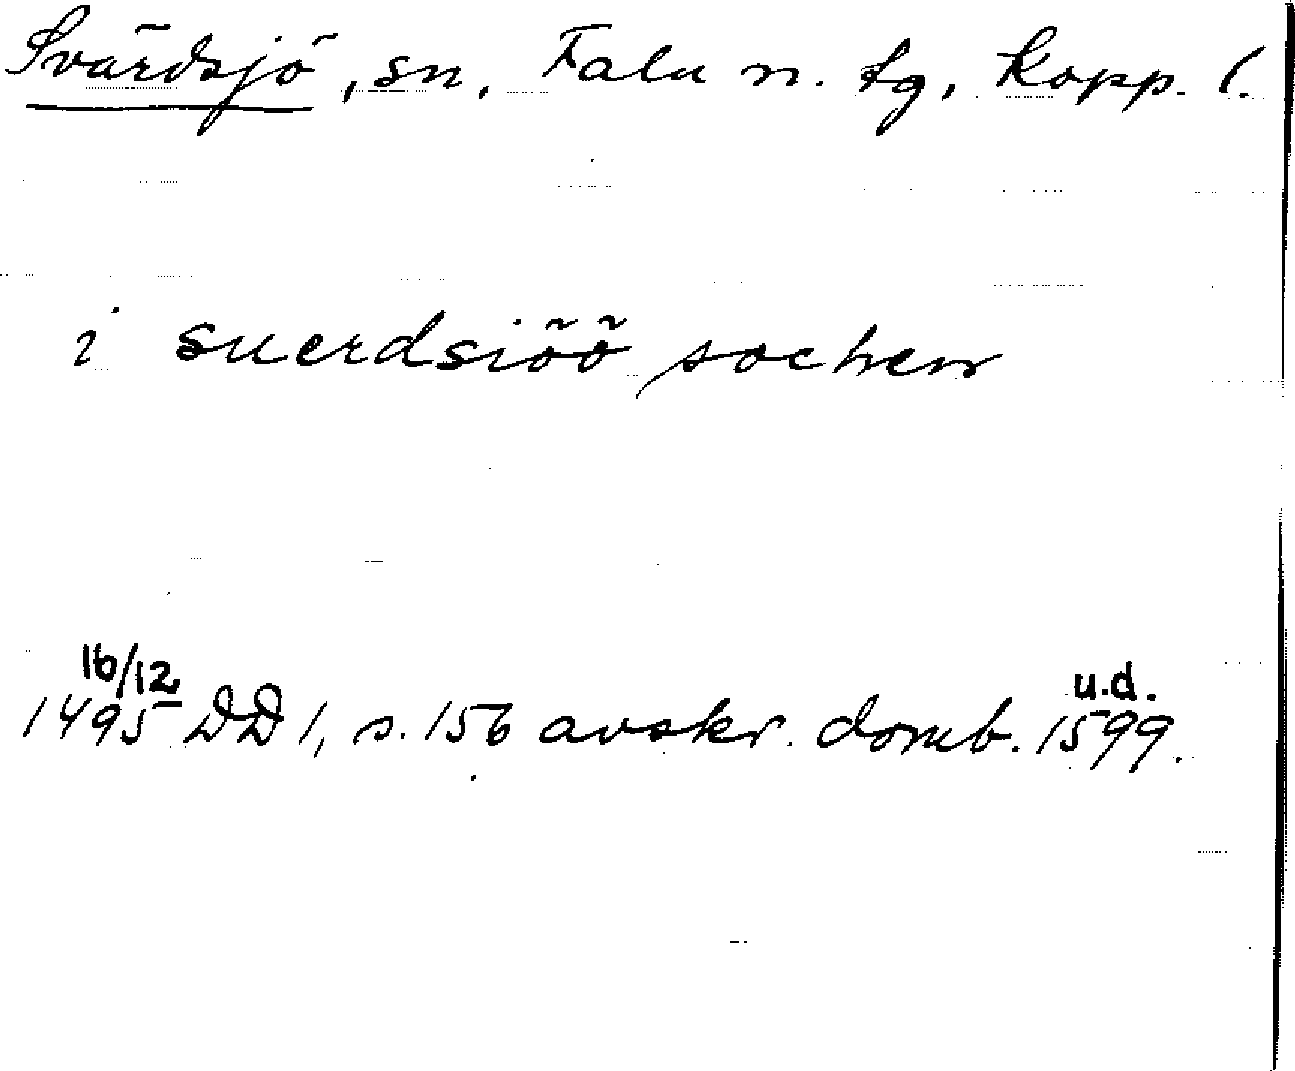 Svärdsjö, sn, Falu n. tg, Kopp. l.
i suerdsiöö sochen
16/12
1495 DD 1, s. 156 avskr. domb. 1599.
u.d.